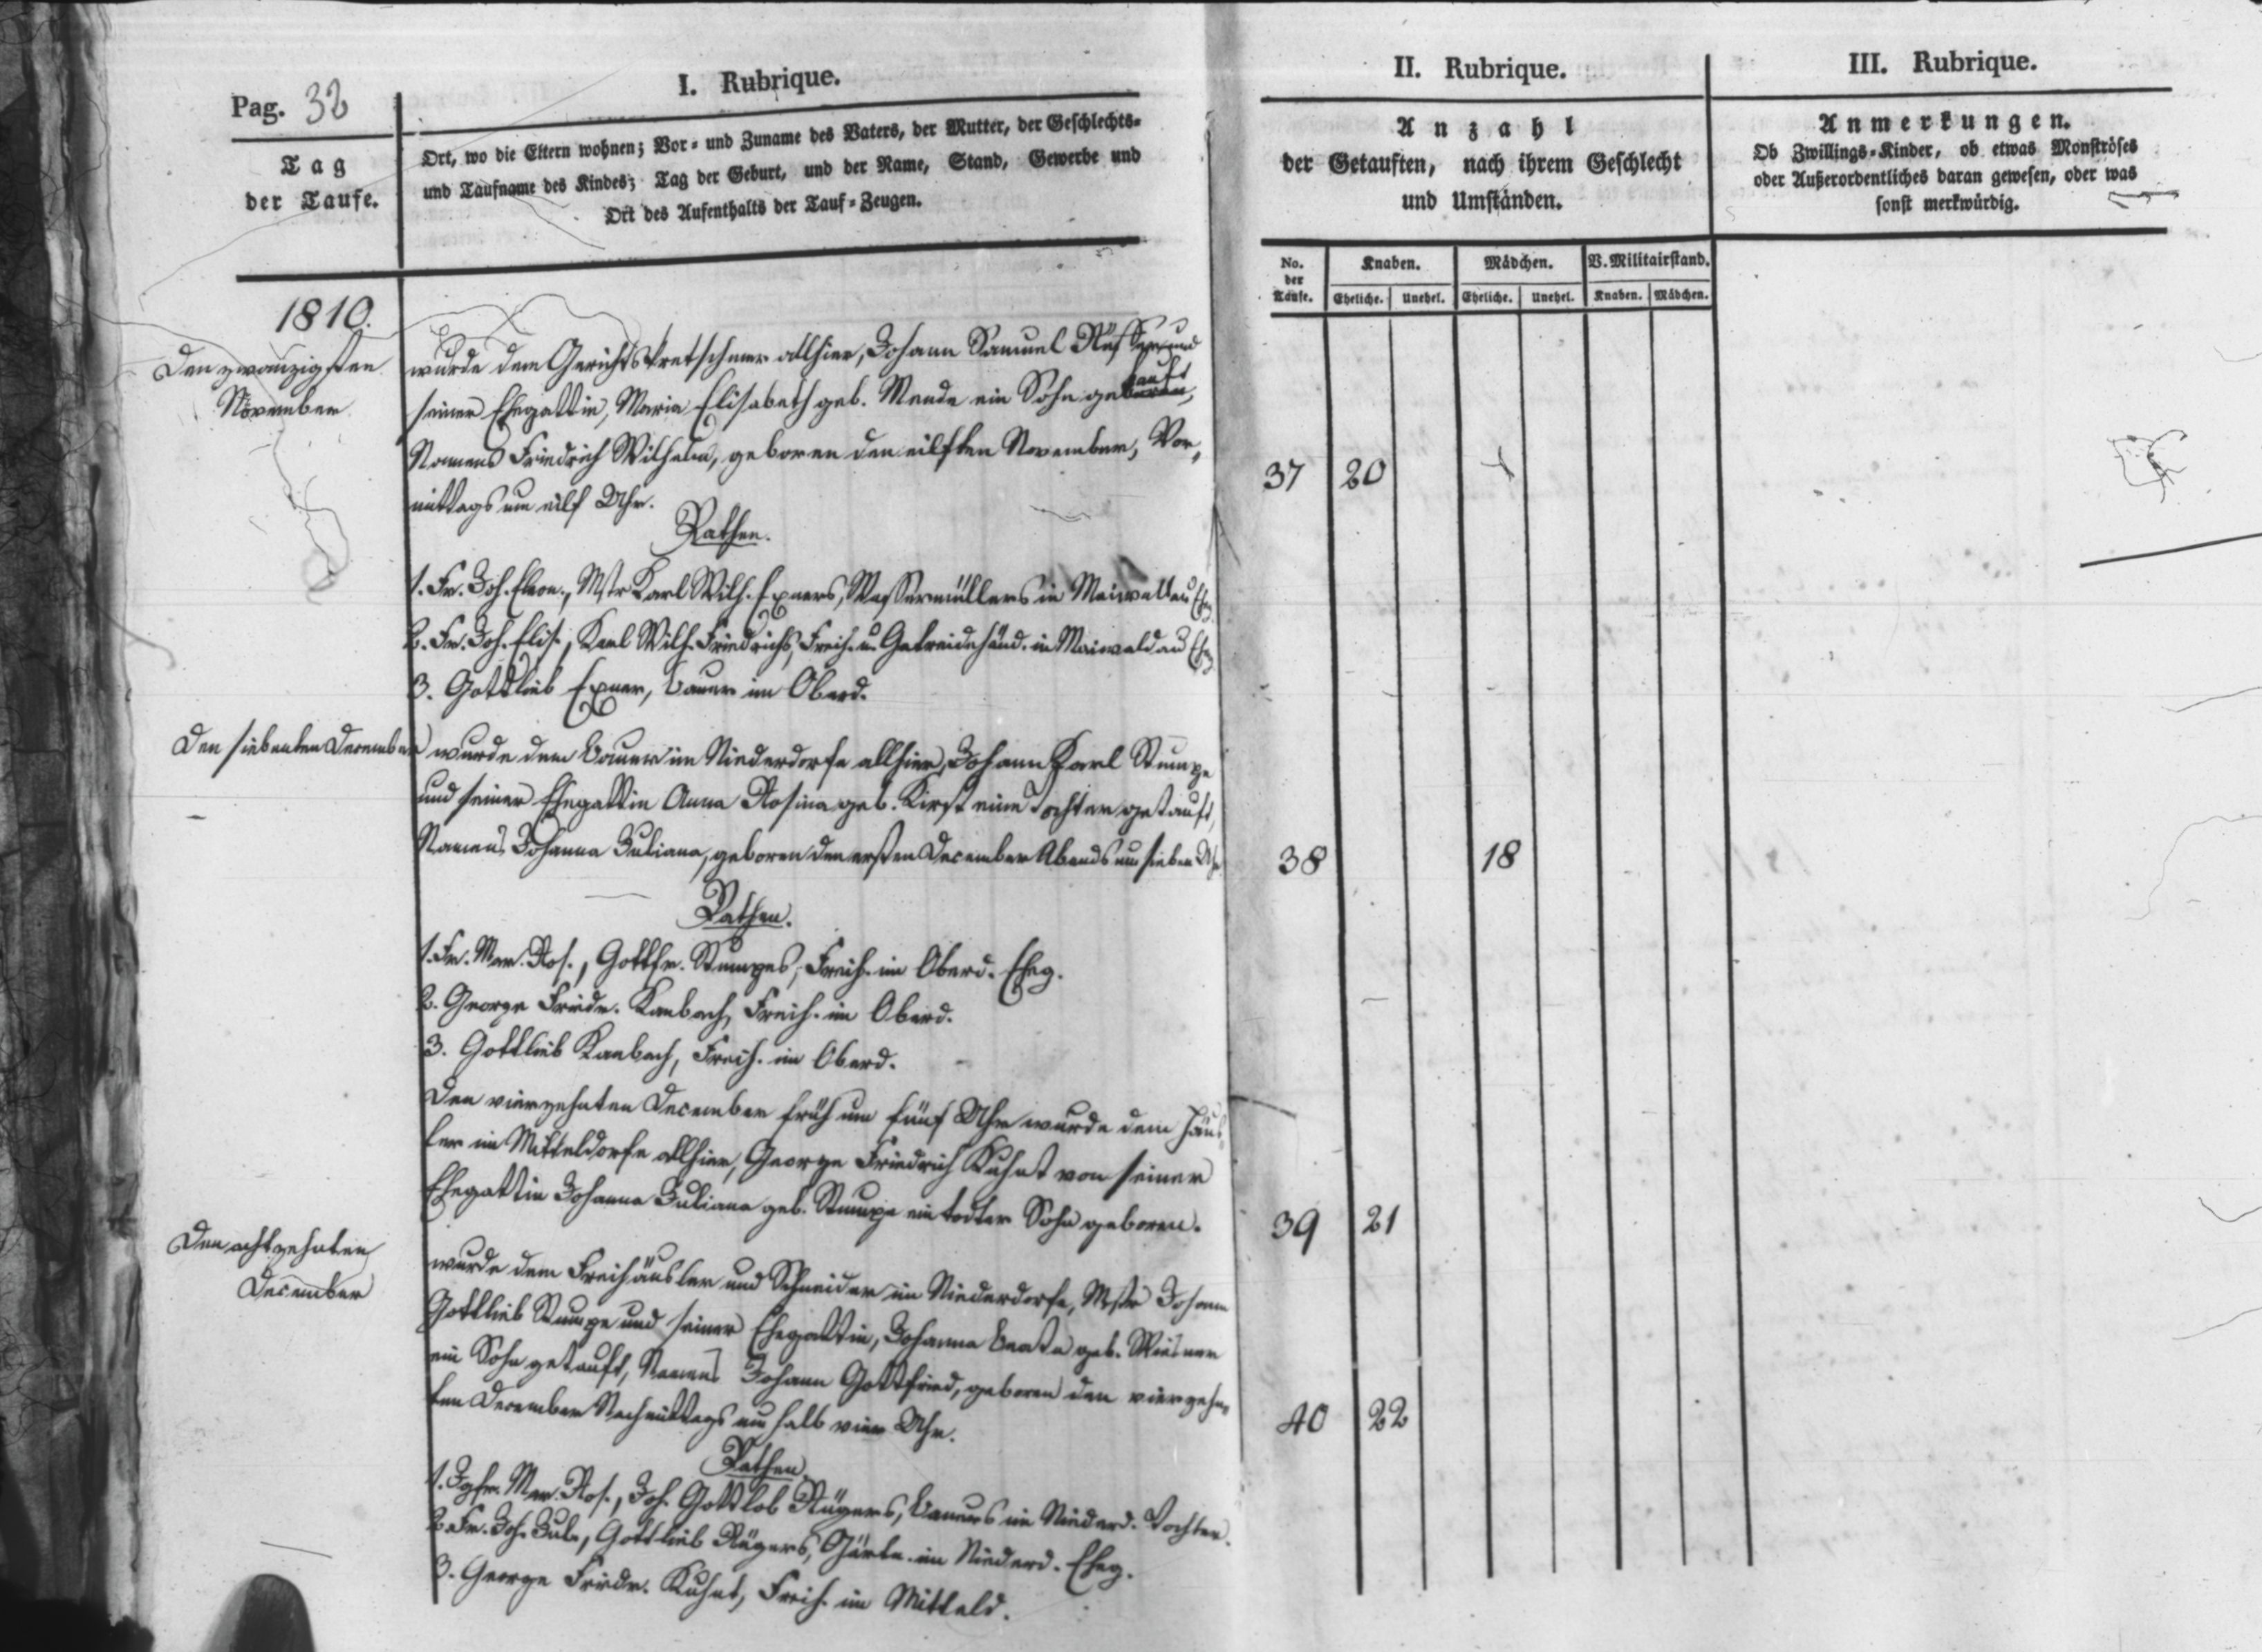 Pag. 32
I. Rubrique.
Tag
der Taufe.
Ort, wo die Eltern wohnen; Vor- und Zuname des Vaters, der Mutter, der Geschlechts-
und Taufname des Kindes; Tag der Geburt, und der Name, Stand, Gewerbe und
Ort des Aufenthalts der Tauf-Zeugen.
1810.
Den zwanzigsten
November
wurde dem Gerichtskretschmer allhier, Johann Samuel und
seiner Ehegattin, Maria Elisabeth geb. Mende ein Sohn getauft,
Namens Friedrich Wilhelm, geboren den eilften November, Vor-
mittags um eilf Uhr.
Pathen.
1. Fr. Joh. Eleon., Mstr Karl Wilh. Exners, Wassermüllers in Maiwaldau Eheg.
2. Fr. Joh. Elis., Karl Wilh. Friedrichs, Freih. u. Getreidehänd. in Maiwaldau Eheg.
3. Gottlieb Exner, Bauer im Oberd.
Den siebenten December
wurde dem Bauer im Niederdorfe allhier, Johann Karl Stumpe
und seiner Ehegattin Anna Rosina geb. Kirst eine Tochter getauft,
Namens Johanna Juliana, geboren den ersten December Abends um sieben Uhr
Pathen.
1. Fr. Mar. Ros., Gottfr. Stumpes, Freih. im Oberd. Eheg.
2. George Friedr. Kambach, Freih. im Oberd.
3. Gottlieb Kambach, Freih. im Oberd.
Den vierzehnten December früh um fünf Uhr wurde dem Häus-
ler im Mitteldorfe allhier, George Friedrich Kuhnt von seiner
Ehegattin Johanna Juliana geb. Stumpe ein todter Sohn geboren.
Den achtzehnten
December
wurde dem Freihäusler und Schneider im Niederdorfe, Mstr Johann
Gottlieb Stumpe und seiner Ehegattin, Johanna Beata geb. Wiesner
ein Sohn getauft, Namens Johann Gottfried, geboren den vierzehn-
ten December Nachmittags um halb vier Uhr.
Pathen.
1. Jgfr. Mar. Ros., Joh. Gottlob Rügers, Bauers im Niederd. Tochter.
2. Fr. Joh. Jul., Gottlieb Rügers, Gärtn. im Niederd. Eheg.
3. George Friedr. Kuhnt, Freih. im Mitteld.
II. Rubrique.
Anzahl
der Getauften, nach ihrem Geschlecht
und Umständen.
No.
der
Taufe.
Knaben.
Mädchen.
V. Militairstand.
Eheliche.
Unehel.
Eheliche.
Unehel.
Knaben.
Mädchen.
37 20
38 18
39 21
40 22
III. Rubrique.
Anmerkungen.
Ob Zwillings-Kinder, ob etwas Monströses
oder Außerordentliches daran gewesen, oder was
sonst merkwürdig.